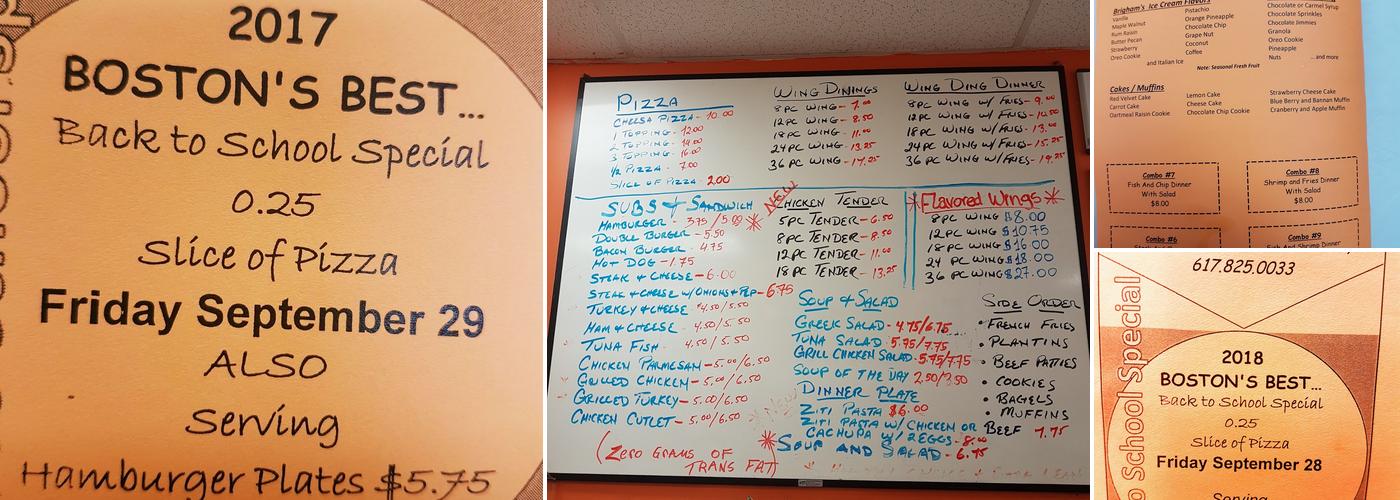 2017
BOSTON'S BEST...
Back to School Special
0.25
Slice of Pizza
Friday September 29
ALSO
Serving
Hamburger Plates $5.75
PIZZA
CHEESA PIZZA - 10.00
1 TOPPING - 12.00
2 TOPPING - 14.00
3 TOPPING - 16.00
1/2 PIZZA - 7.00
SLICE OF PIZZA - 2.00
WING DININGS
8 PC WING - 7.00
12 PC WING - 8.50
18 PC WING - 11.00
24 PC WING - 13.25
36 PC WING - 17.25
WING DING DINNER
8 PC WING W/ FRIES - 9.00
12 PC WING W/ FRIES - 10.50
18 PC WING W/ FRIES - 13.00
24 PC WING W/ FRIES - 15.25
36 PC WING W/ FRIES - 19.25
SUBS & SANDWICH
HAMBURGER - 3.75/5.00
DOUBLE BURGER - 5.50
BACON BURGER - 4.75
HOT DOG - 1.75
STEAK & CHEESE - 6.00
STEAK & CHEESE W/ ONIONS & PEP - 6.75
TURKEY & CHEESE - 4.50/5.50
HAM & CHEESE - 4.50/5.50
TUNA FISH - 4.50/5.50
CHICKEN PARMESAN - 5.00/6.50
GRILLED CHICKEN - 5.00/6.50
GRILLED TURKEY - 5.00/6.50
CHICKEN CUTLET - 5.00/6.50
(ZERO GRAMS OF
TRANS FAT
NEW
CHICKEN TENDER
5 PC TENDER - 6.50
8 PC TENDER - 8.50
12 PC TENDER - 11.00
18 PC TENDER - 13.25
Flavored Wings
8 PC WING $8.00
12 PC WING $10.75
18 PC WING $16.00
24 PC WING $18.00
36 PC WING $27.00
SOUP & SALAD
GREEK SALAD - 4.75/6.75
TUNA SALAD - 5.75/7.75
GRILL CHICKEN SALAD - 5.75/7.75
SOUP OF THE DAY 2.50/3.50
DINNER PLATE
ZITI PASTA $6.00
ZITI PASTA W/ CHICKEN OR BEEF 7.75
CACHUPA W/ 2 EGGS - 8.00
SOUP AND SALAD - 6.75
SIDE ORDER
• FRENCH FRIES
• PLANTINS
• BEEF PATTIES
• COOKIES
• BAGELS
• MUFFINS
Brigham's Ice Cream Flavors
Vanilla
Maple Walnut
Rum Raisin
Butter Pecan
Strawberry
Oreo Cookie
and Italian Ice
Pistachio
Orange Pineapple
Chocolate Chip
Grape Nut
Coconut
Coffee
Chocolate or Carmel Syrup
Chocolate Sprinkles
Chocolate Jimmies
Granola
Oreo Cookie
Pineapple
Nuts
... and more
Note: Seasonal Fresh Fruit
Cakes / Muffins
Red Velvet Cake
Carrot Cake
Oatmeal Raisin Cookie
Lemon Cake
Cheese Cake
Chocolate Chip Cookie
Strawberry Cheese Cake
Blue Berry and Bannan Muffin
Cranberry and Apple Muffin
Combo #7
Fish And Chip Dinner
With Salad
$8.00
Combo #8
Shrimp and Fries Dinner
With Salad
$8.00
Combo #6
Combo #9
617.825.0033
School Special
2018
BOSTON'S BEST...
Back to School Special
0.25
Slice of Pizza
Friday September 28
Serving